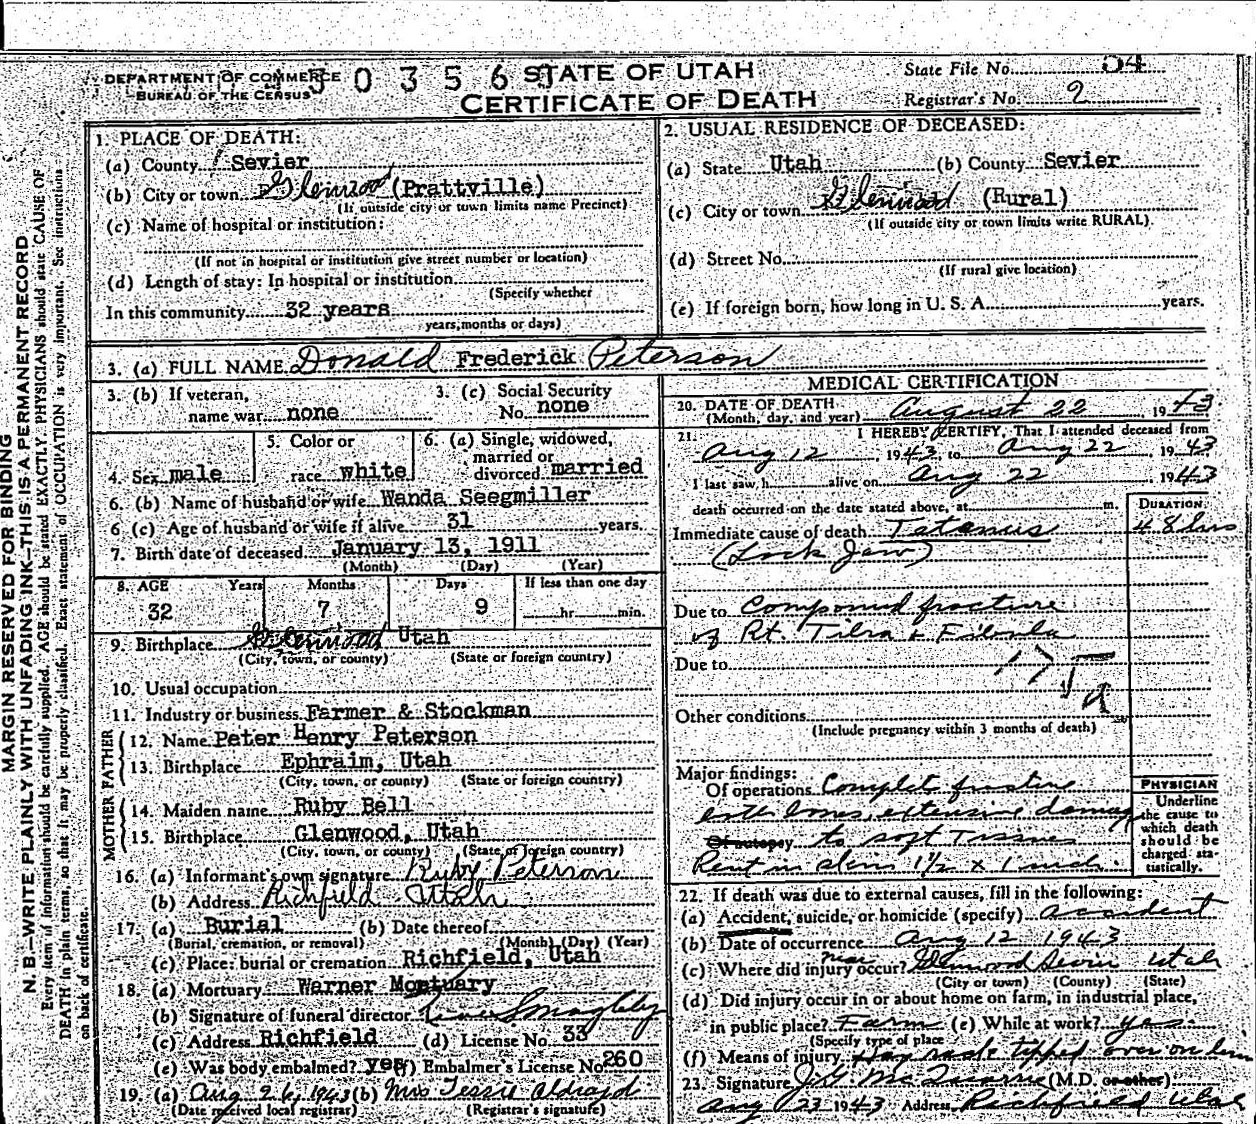 DEPARTMENT OF COMMERCE
BUREAU OF THE CENSUS
STATE OF UTAH
CERTIFICATE OF DEATH
State File No. 54
Registrar's No. 2
MARGIN RESERVED FOR BINDING
N. B.—WRITE PLAINLY WITH UNFADING INK—THIS IS A PERMANENT RECORD
Every item of information should be carefully supplied. AGE should be stated EXACTLY. PHYSICIANS should state CAUSE OF
DEATH in plain terms, so that it may be properly classified. Exact statement of OCCUPATION is very important. See instructions
on back of certificate.
1. PLACE OF DEATH:
(a) County Sevier
(b) City or town Glenwood (Prattville)
(If outside city or town limits name Precinct)
(c) Name of hospital or institution:
(If not in hospital or institution give street number or location)
(d) Length of stay: In hospital or institution
(Specify whether
In this community 32 years
years, months or days)
2. USUAL RESIDENCE OF DECEASED:
(a) State Utah (b) County Sevier
(c) City or town Glenwood (Rural)
(If outside city or town limits write RURAL)
(d) Street No.
(If rural give location)
(e) If foreign born, how long in U. S. A. years.
3. (a) FULL NAME Donald Frederick Peterson
3. (b) If veteran,
name war none
3. (c) Social Security
No. none
4. Sex male
5. Color or
race white
6. (a) Single, widowed,
married or
divorced married
6. (b) Name of husband or wife Wanda Seegmiller
6. (c) Age of husband or wife if alive 31 years.
7. Birth date of deceased January 13, 1911
(Month) (Day) (Year)
8. AGE Years Months Days If less than one day
32 7 9 hr. min.
9. Birthplace Glenwood Utah
(City, town, or county) (State or foreign country)
10. Usual occupation
11. Industry or business Farmer & Stockman
FATHER
12. Name Peter Henry Peterson
13. Birthplace Ephraim, Utah
(City, town, or county) (State or foreign country)
MOTHER
14. Maiden name Ruby Bell
15. Birthplace Glenwood, Utah
(City, town, or county) (State or foreign country)
16. (a) Informant's own signature Ruby Peterson
(b) Address Richfield Utah
17. (a) Burial (b) Date thereof
(Burial, cremation, or removal) (Month) (Day) (Year)
(c) Place: burial or cremation Richfield, Utah
18. (a) Mortuary Warner Mortuary
(b) Signature of funeral director
(c) Address Richfield (d) License No. 33
(e) Was body embalmed? yes Embalmer's License No. 260
19. (a) Aug 24, 1943 (b) Mrs Tessie
(Date received local registrar) (Registrar's signature)
MEDICAL CERTIFICATION
20. DATE OF DEATH
(Month, day, and year) August 22, 1943
21. I HEREBY CERTIFY, That I attended deceased from
Aug 12, 1943, to Aug 22, 1943
I last saw h alive on Aug 22, 1943
death occurred on the date stated above, at m.
DURATION
Immediate cause of death Tetanus 48 hrs
(Lock Jaw)
Due to Compound fracture
of Rt. Tibia & Fibula
Due to
Other conditions
(Include pregnancy within 3 months of death)
Major findings:
Of operations Complet fracture
both bones, extensive damag
Of autopsy to soft tissues
Rent in skin 1½ x 1 inch.
PHYSICIAN
Underline
the cause to
which death
should be
charged sta-
tistically.
22. If death was due to external causes, fill in the following:
(a) Accident, suicide, or homicide (specify) accident
(b) Date of occurrence Aug 12 1943
(c) Where did injury occur? near Glenwood Sevier Utah
(City or town) (County) (State)
(d) Did injury occur in or about home on farm, in industrial place,
in public place? Farm (e) While at work? yes
(Specify type of place
(f) Means of injury Hay rack tipped over on him
23. Signature (M.D. or other)
Aug 23 1943 Address Richfield Utah